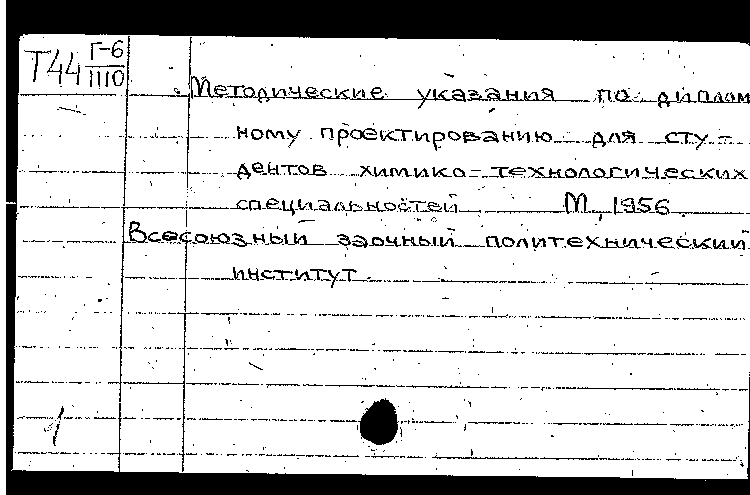 Т44 Г-6
1110
Методические указания по диплом
ному проектированию для сту-
дентов химико-технологических
специальностей М., 1956.
Всесоюзный заочный политехнический
институт.